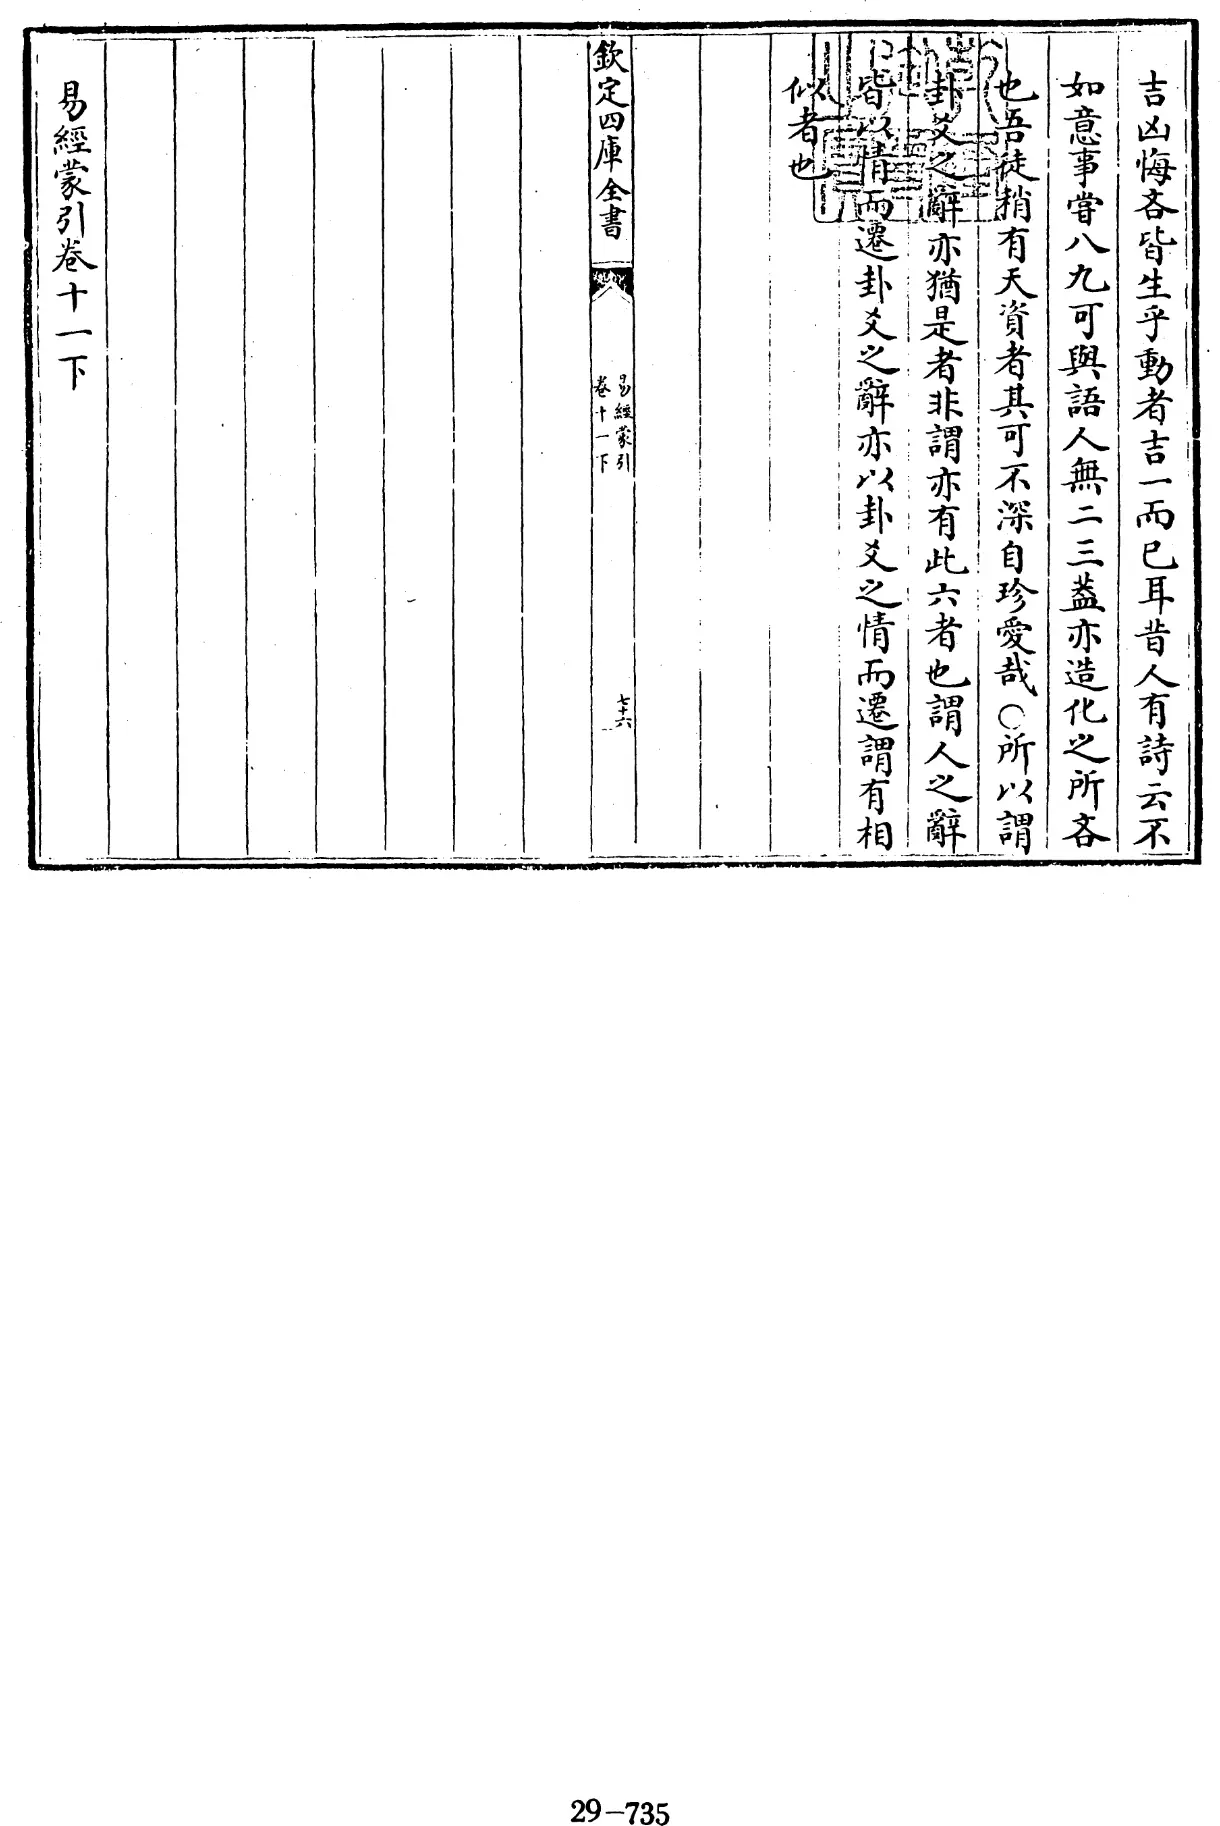 吉凶悔吝皆生乎動者吉一而已耳昔人有詩云不
如意事嘗八九可與語人無二三葢亦造化之所吝
也吾徒稍有天資者其可不深自珍愛哉○所以謂
卦爻之辭亦猶是者非謂亦有此六者也謂人之辭
皆以情而遷卦爻之辭亦以卦爻之情而遷謂有相
似者也
欽定四庫全書
易經蒙引
卷十一下
七十六
易經蒙引卷十一下
29-735